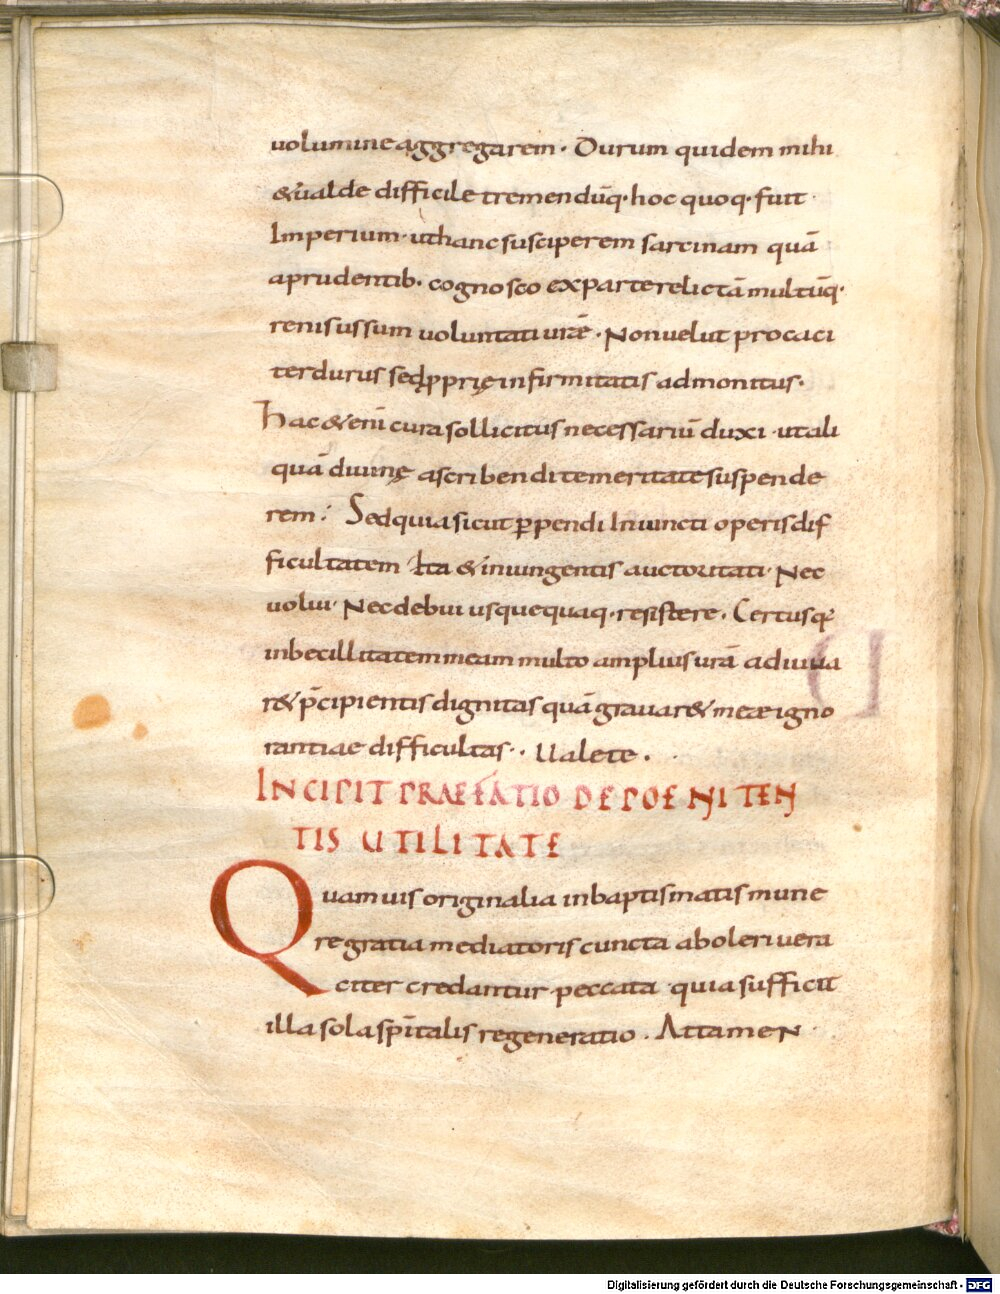 uolumine aggregarem · Durum quidem mihi
& ualde difficile tremendūq· hoc quoq· fuit ·
Imperium · ut hanc susciperem sarcinam quā
a prudentib· cognosco ex parte relictā multūq·
renisus sum uoluntati urǣ · Non uelut procaci
ter durus sed ꝓprię infirmitatis admonitus ·
Hac & enī cura sollicitus necessariū duxi · ut ali
quā diuinę ascribendi temeritate suspende
rem · Sed quia sicut ꝑpendi Iniuncti operis dif
ficultatem Ita & iniungentis auctoritati · Nec
uolui · Nec debui usquequaq· resistere · Certusq·
inbecillitatem meam multo amplius urā adiuua
r& p̄cipientis dignitas quā grauar& meæ igno
rantiae difficultas · · Ualete ·
INCIPIT PRAEFATIO DE POENITEN
TIS UTILITATE
Quamuis originalia in baptismatis mune
re gratia mediatoris cuncta aboleri uera
citer credantur peccata · quia sufficit
illa sola spīritalis regeneratio · Attamen ·
Digitalisierung gefördert durch die Deutsche Forschungsgemeinschaft - DFG